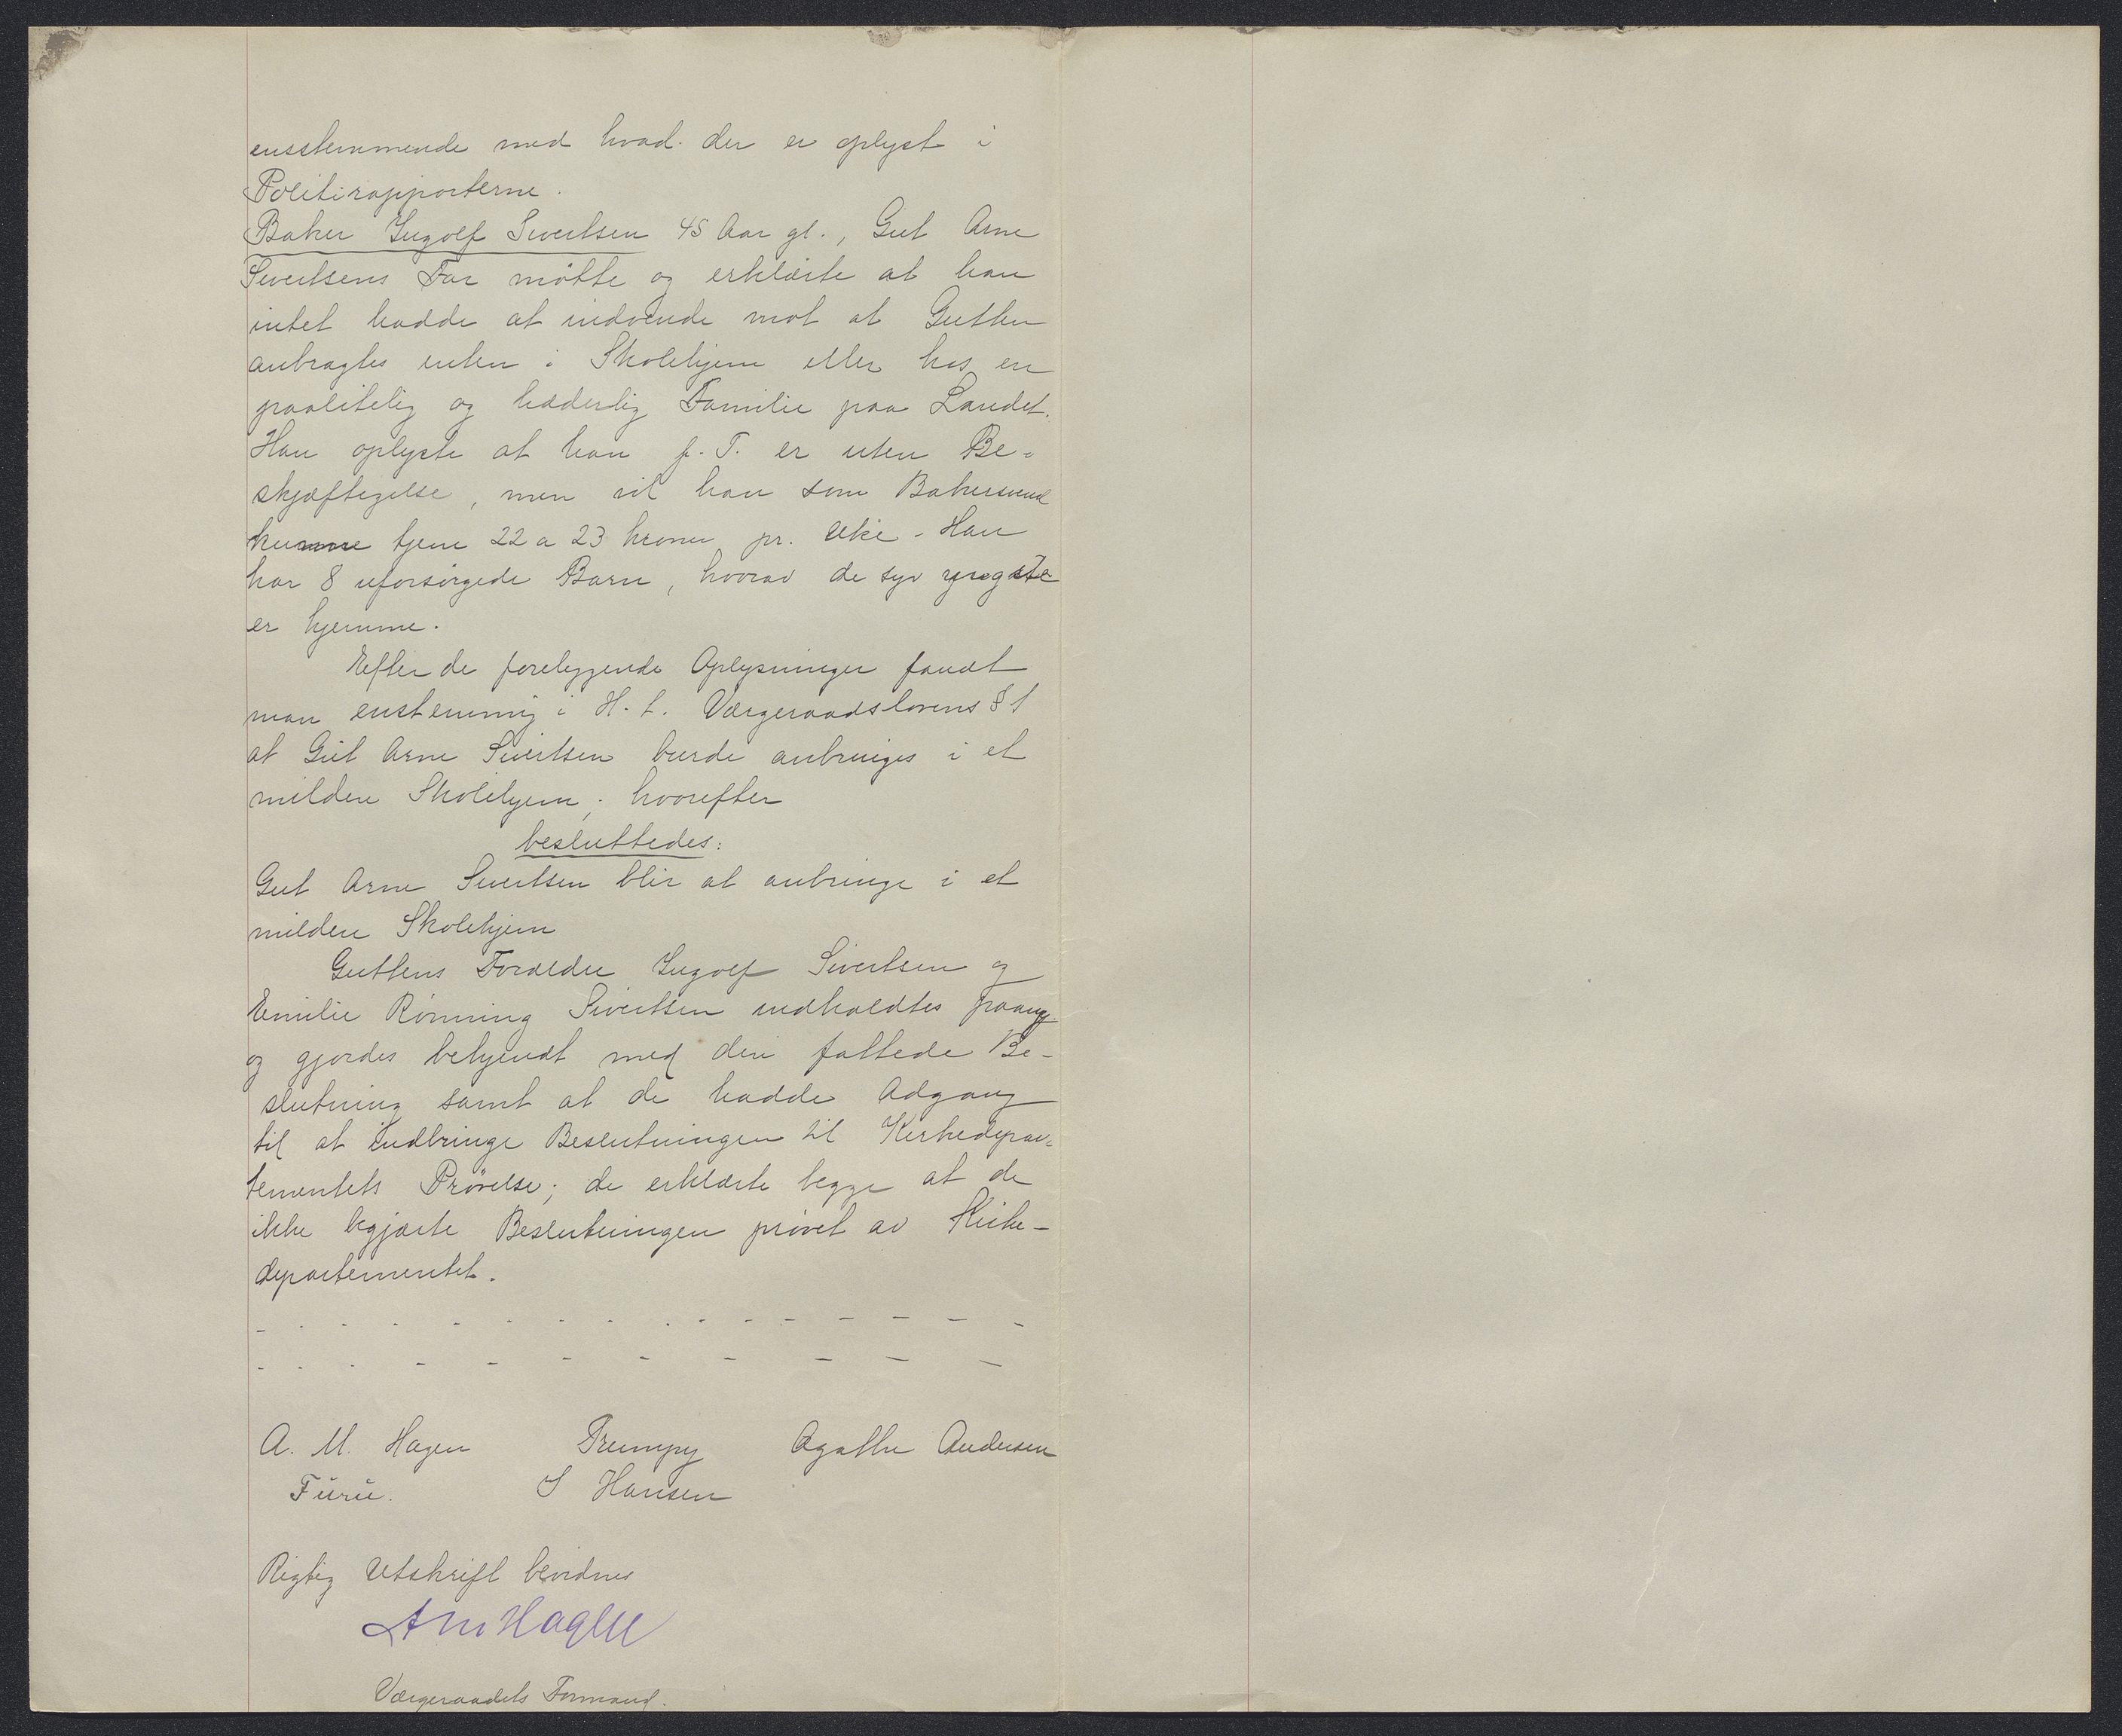 ensstemmende med hvad der er oplyst i
Politirapporterne.
Baker Ingolf Sivertsen 45 Aar gl., Gut Arne
Sivertsens Far møtte og erklærte at han
intet hadde at indvende mot at Gutten
anbragtes enten i Skolehjem eller hos en
paalitelig og hæderlig Familie paa Landet.
Han oplyste at han f. T. er uten Be-
skjæftigelse, men vil han som Bakersvend
kunne tjene 22 a 23 kroner pr. Uke - Han
har 8 uforsørgede Barn, hvorav de syv yngste
er hjemme.
Efter de foreliggende Oplysninger fandt
man enstemmig i H. t. Værgeraadslovens § 1
at Gut Arne Sivertsen burde anbringes i et
mildere Skolehjem; hvorefter
besluttedes:
Gut Arne Sivertsen blir at anbringe i et
mildere Skolehjem
Guttens Forældre Ingolf Sivertsen og
Emilie Rønning Sivertsen indkaldtes paany
og gjordes bekjendt med den fattede Be-
slutning samt at de hadde Adgang
til at indbringe Beslutningen til Kirkedepar-
tementets Prøvelse; de erklærte begge at de
ikke begjærte Beslutningen prøvet av Kirke-
departementet.
A. M. Hagen Trumpy Agathe Andersen
Furu. S Hansen
Rigtig Utskrift bevidnes
A M Hagen
Værgeraadets Formand.